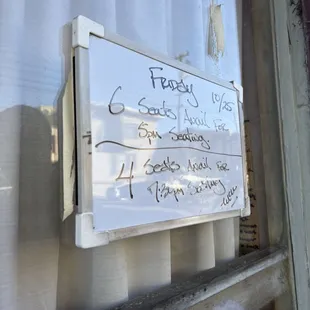 Friday 10/25
6 Seats Avail For
5pm Seating
4 Seats Avail For
7:30pm Seating